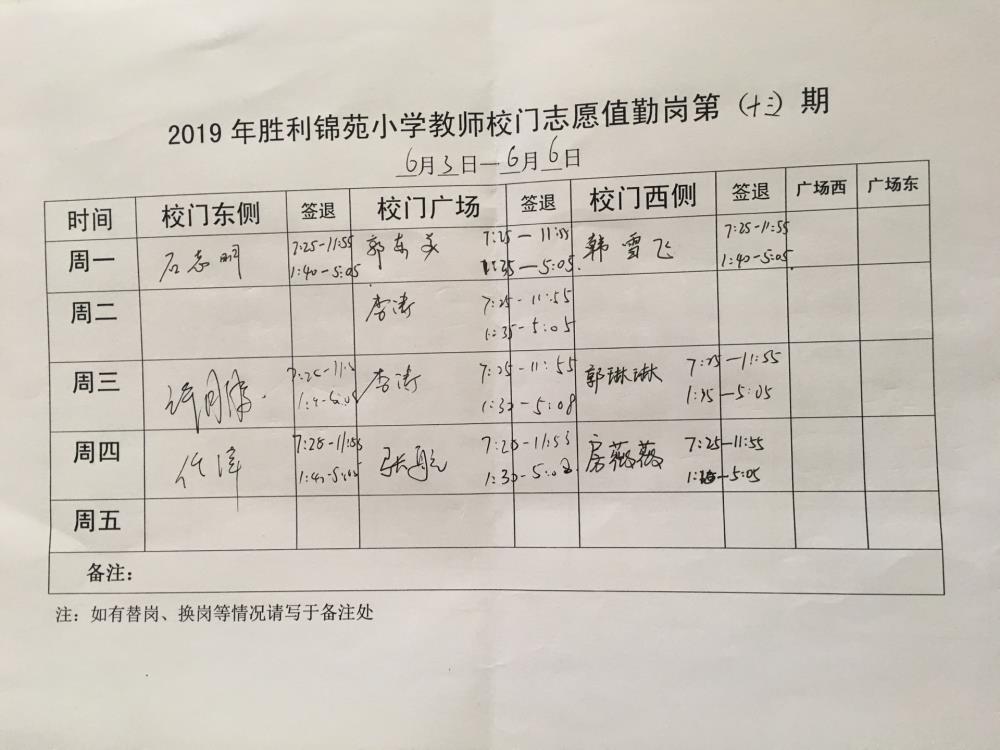 2019年胜利锦苑小学教师校门志愿值勤岗第（十三）期
6月3日—6月6日
时间 校门东侧 签退 校门广场 签退 校门西侧 签退 广场西 广场东
周一 石志明 7:25-11:55 郭东美 7:25-11:55 韩雪飞 7:25-11:55
1:40-5:05 1:35-5:05 1:40-5:05
周二 李涛 7:25-11:55
1:35-5:05
周三 李涛 7:25-11:55 郭琳琳 7:25-11:55
1:30-5:08 1:35-5:05
周四 任泽 7:28-11:55 张航 7:20-11:53 房薇薇 7:25-11:55
1:40-5:05 1:30-5:02 5:05
周五
备注：
注：如有替岗、换岗等情况请写于备注处